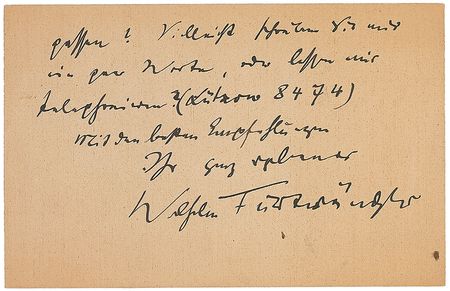 passen? Vielleicht schreiben Sie mir
ein paar Worte, oder lassen mir
telephonieren? (Lützow 8474)
Mit den besten Empfehlungen
Ihr ganz ergebener
Wilhelm Furtwängler